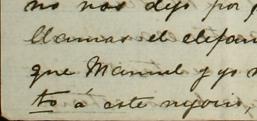 no nos dejó por
llamar el elefan
que Manuel y yo
to á este negocio,